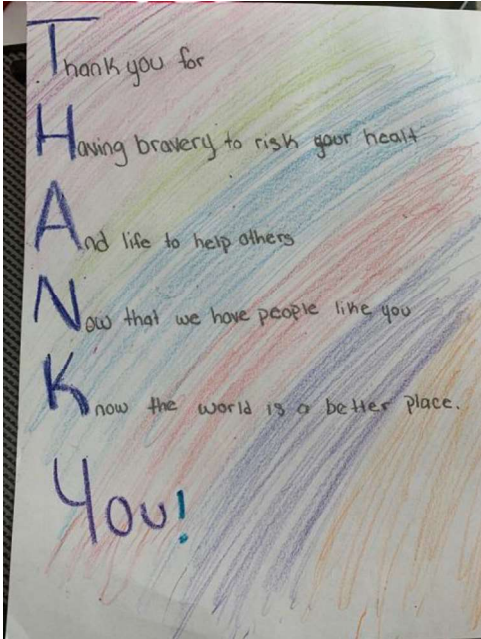 Thank you for
Having bravery to risk your healt
And life to help others
Now that we have people like you
Know the world is a better place.
You!